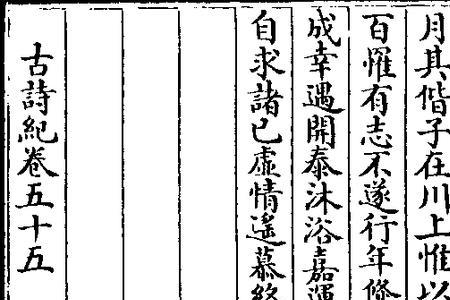 月其偕子在川上惟以
百罹有志不遂行年倏
成幸遇開泰沐浴嘉運
自求諸已虛情遙慕終
古詩紀卷五十五